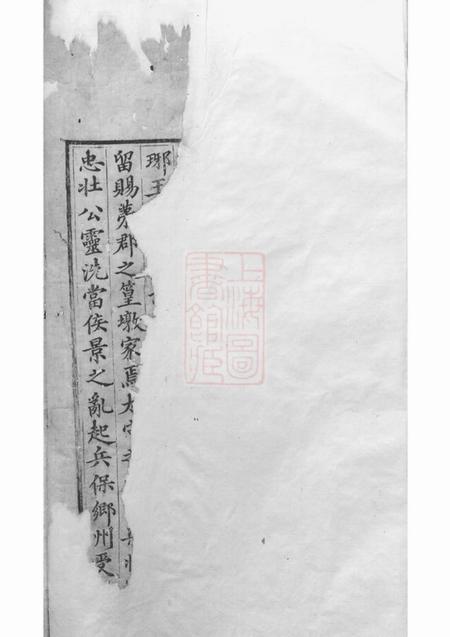 琊王
留賜第郡之篁墩家焉太守
忠壯公靈洗當侯景之亂起兵保鄉州受
上海圖書館臧